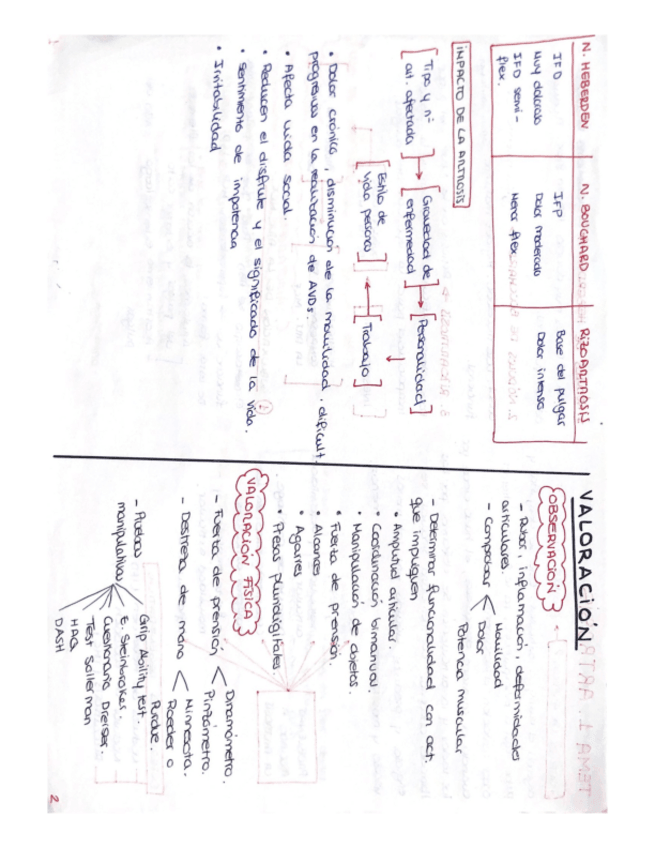 N. HEBERDEN
N. BOUCHARD
RIZOARTROSIS
IFD
IFP
Base del pulgar
Muy doloroso
Dolor moderado
Dolor intenso
IFD semi-
flex.
Menor flex
IMPACTO DE LA ARTROSIS
[Tipo y nº
art. afectada] → [Gravedad de
enfermedad] → [Personalidad]
[Estilo de
vida personal] ← [Trabajo]
• Dolor crónico, disminución de la movilidad, dificult.
progresiva en la realización de AVDs.
• Afecta vida social.
• Reducen el disfrute y el significado de la vida.
• Sentimiento de impotencia
• Irritabilidad
1
VALORACIÓN
OBSERVACIÓN
- Rubor, inflamación, deformidades
articulares.
- Comprobar < Movilidad
Dolor
Potencia muscular
- Determinar funcionalidad con act.
que impliquen
• Amplitud articular.
• Coordinación bimanual.
• Manipulación de objetos.
• Fuerza de prensión.
• Alcances
• Agarres
• Presas pluridigitales.
VALORACIÓN FÍSICA
- Fuerza de prensión < Dinamómetro.
Pinzómetro.
- Destreza de mano < Minnesota.
Roeder o
Purdue.
- Pruebas
manipulativas
Grip Ability test.
E. Steinbroker.
Cuestionario Dreiser.
Test Sollerman
HAQ
DASH
2